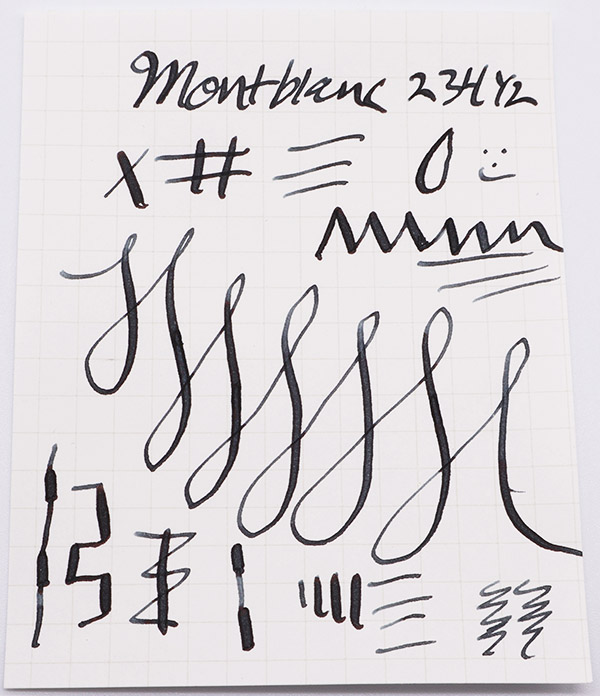 Montblanc 234 1/2
X #